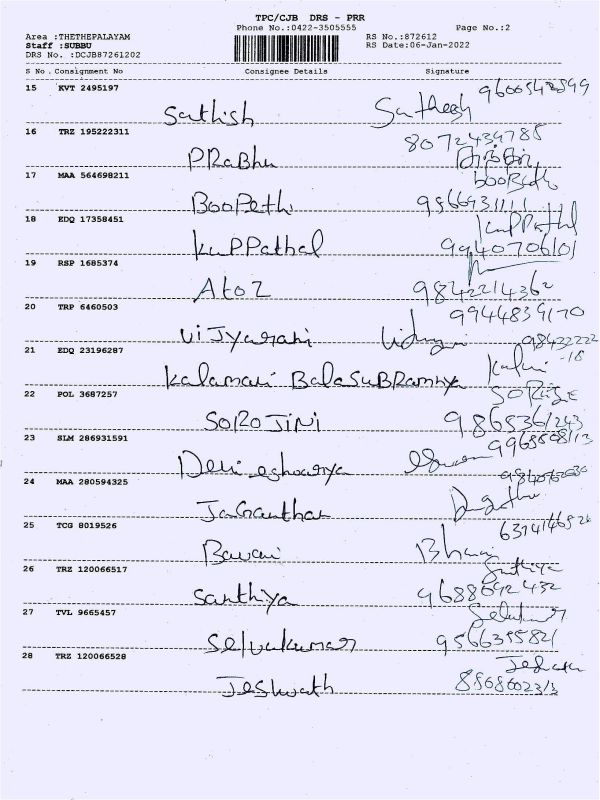 TPC/CJB DRS - PRR
Phone No.:0422-3505555 Page No.:2
Area :THETHEPALAYAM RS No.:872612
Staff :SUBBU RS Date:06-Jan-2022
DRS No. :DCJB87261202
S No. Consignment No Consignee Details Signature
15 KVT 2495197
Sathish Satheesh
16 TRZ 195222311 8072439785
PRabhu
17 MAA 564698211 booPathi
BooPathi 9566931111
18 EDQ 17358451 KupPathal
KupPathal 9940706101
19 RSP 1685374
A to Z 9842214362
20 TRP 6460503 9944839170
Vijyarani
21 EDQ 23196287
Kalamani BalaSubRamnya
22 POL 3687257
SoRoJiNi 9865361243
23 SLM 286931591
Devi eshwarya
24 MAA 280594325
JaGanthan
25 TCG 8019526
Bavani
26 TRZ 120066517 Santhiya
Santhiya 9688692432
27 TVL 9665457
Selvakumar 9566395821
28 TRZ 120066528
Jeshwath